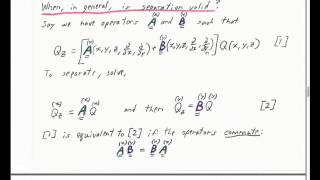 When, in general, is separation valid?
Say we have operators A^(x) and B^(y) such that
Q_z = [A^(x)(x, y, z, ∂/∂x, ∂/∂z) + B^(y)(x, y, z, ∂/∂y, ∂/∂z)] Q(x, y, z) [1]
To separate, solve,
Q_z^(x) = A^(x) Q and then Q_z^(y) = B^(y) Q [2]
[1] is equivalent to [2] if the operators commute:
A^(x) B^(y) = B^(y) A^(x)